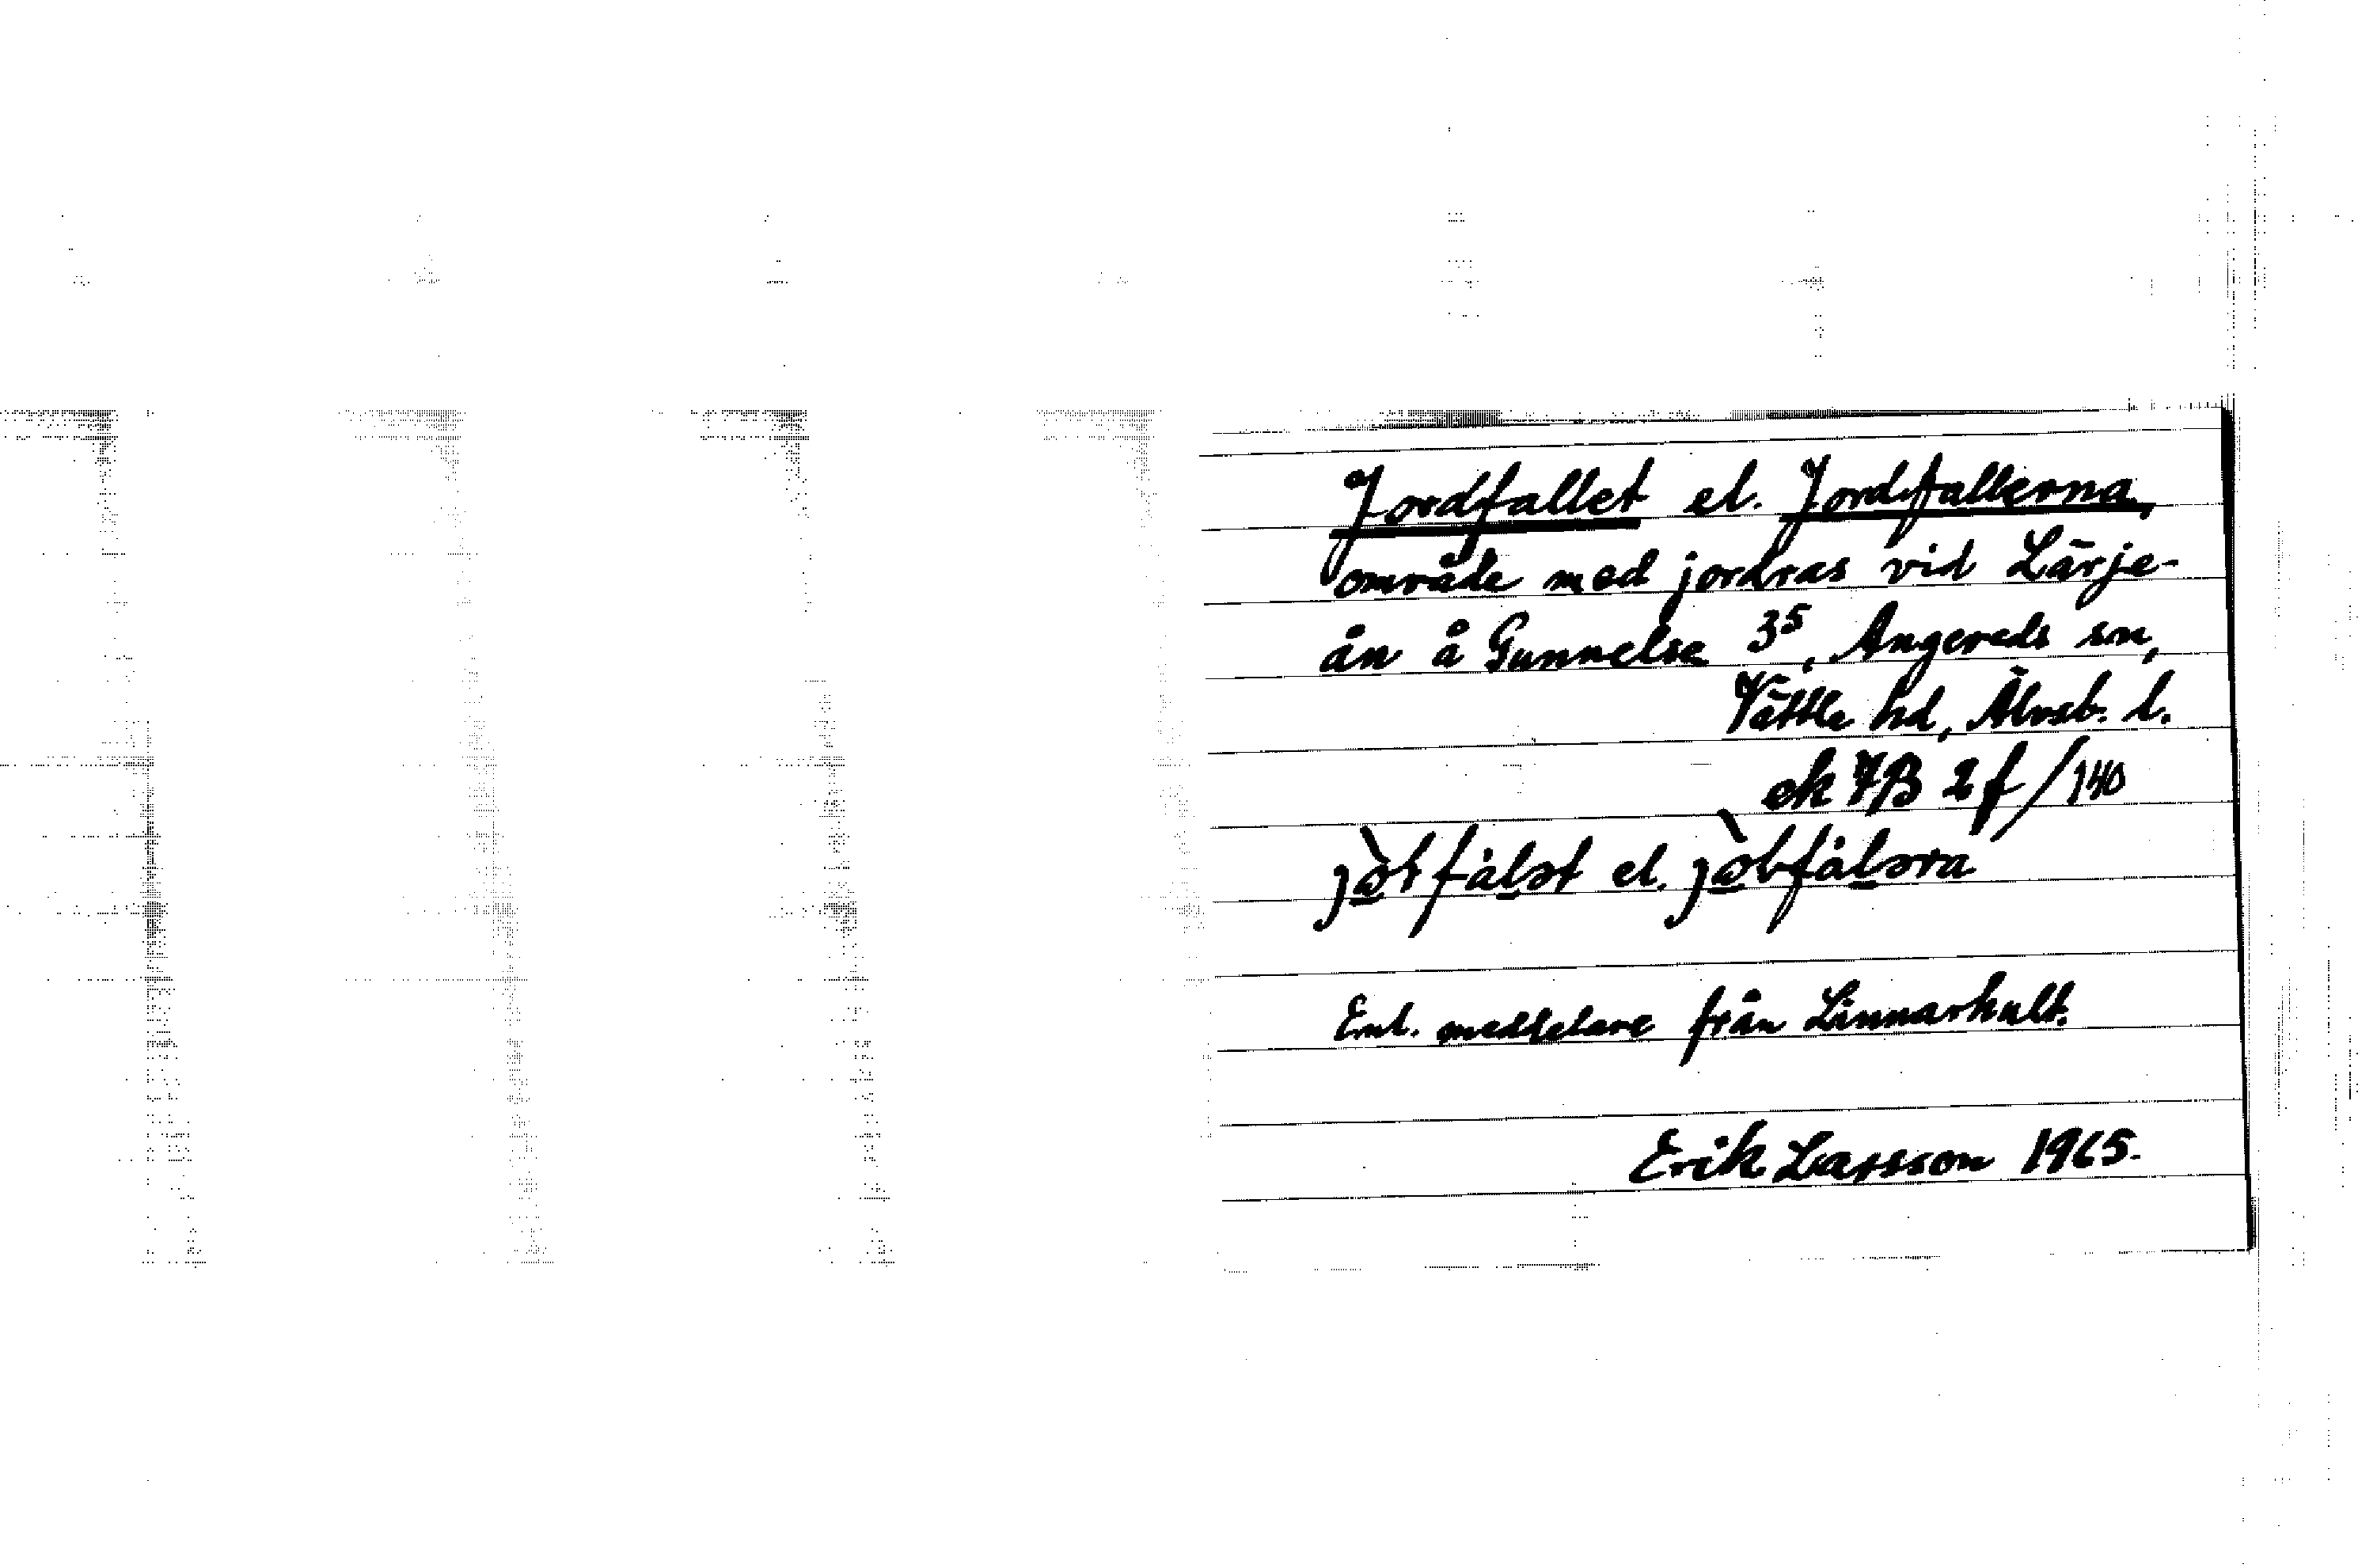 Jordfallet el. Jordfallerna,
område med jordras vid Lärje-
ån å Gunnelse 3⁵, Angereds sn,
Vättle hd, Älvsb. l.
ek 7B 2f/140
el.
Enl. meddelare från Linnarhult.
Erik Larsson 1965.